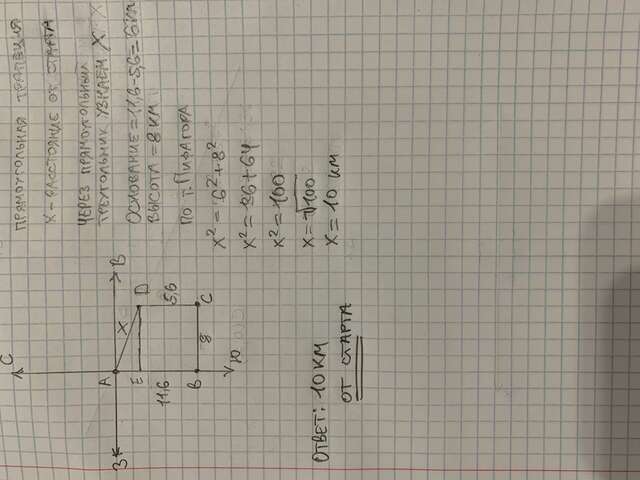 ПРЯМОУГОЛЬНАЯ ТРАПЕЦИЯ
X - РАССТОЯНИЕ ОТ СТАРТА
ЧЕРЕЗ ПРЯМОУГОЛЬНЫЙ
ТРЕУГОЛЬНИК УЗНАЕМ X
ОСНОВАНИЕ = 11,6 - 5,6 = 6 КМ
ВЫСОТА = 8 КМ
ПО Т. ПИФАГОРА
X² = 6² + 8²
X² = 36 + 64
X² = 100
X = √100
X = 10 КМ
С
В
A
X
D
E
5,6
11,6
8
B
C
Ю
З
ОТВЕТ: 10 КМ
ОТ СТАРТА